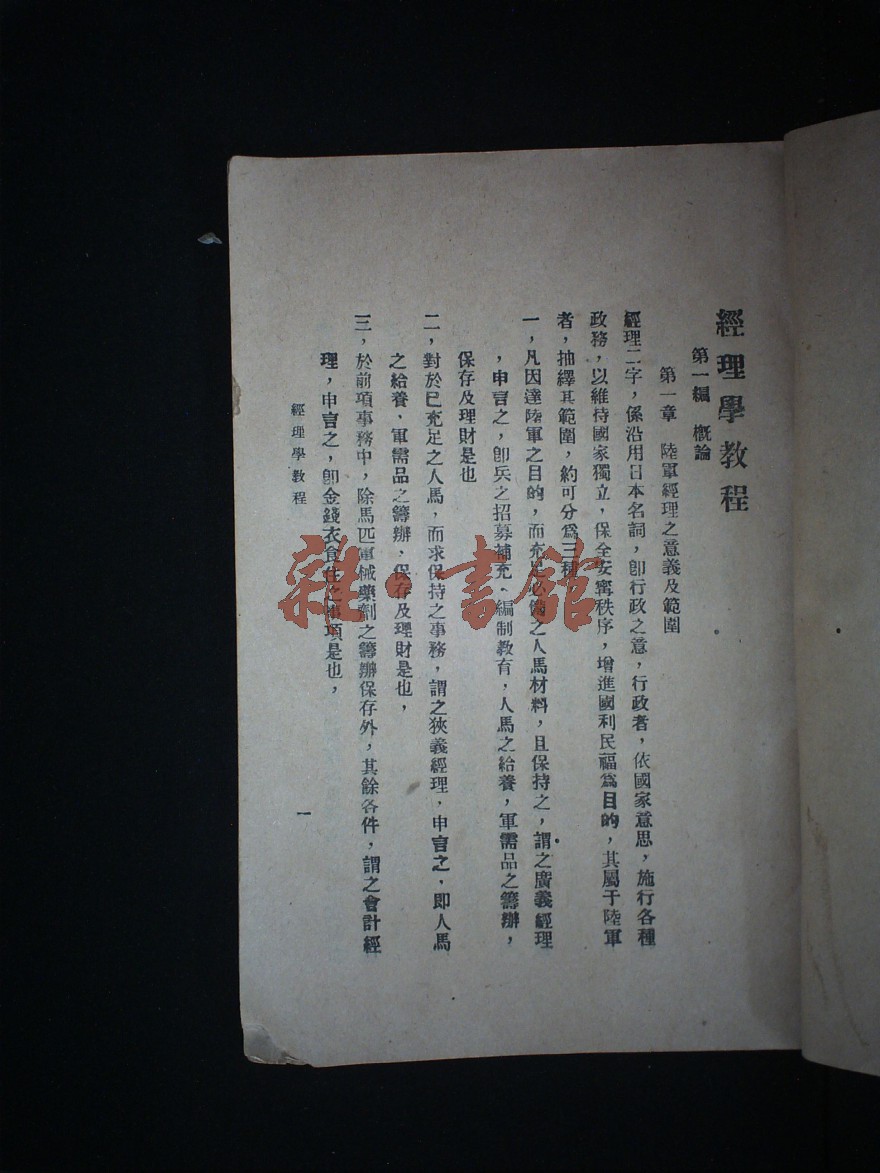 經理學教程
第一編　概論
第一章　陸軍經理之意義及範圍
經理二字，係沿用日本名詞，卽行政之意，行政者，依國家意思，施行各種
政務，以維持國家獨立，保全安甯秩序，增進國利民福爲目的，其屬于陸軍
者，抽繹其範圍，約可分爲三種
一，凡因達陸軍之目的，而充足必備之人馬材料，且保持之，謂之廣義經理
，申言之，卽兵之招募補充，編制教育，人馬之給養，軍需品之籌辦，
保存及理財是也
二，對於已充足之人馬，而求保持之事務，謂之狹義經理，申言之，即人馬
之給養，軍需品之籌辦，保存及理財是也，
三，於前項事務中，除馬匹軍械藥劑之籌辦保存外，其餘各件，謂之會計經
理，申言之，卽金錢衣食住之事項是也，
經理學教程
一
雜·書館